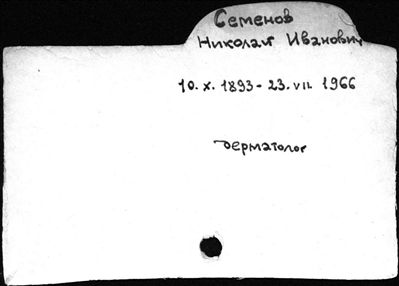 Семенов
Николай Иванович
10. X. 1893 - 23. VII 1966
дерматолог